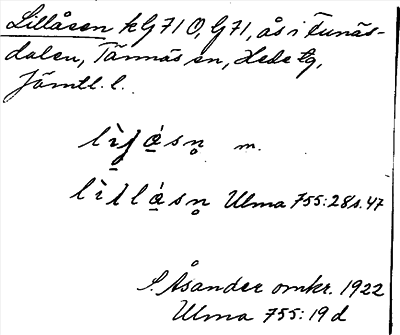 Lillåsen kG710, G71, ås i Funäs-
dalen, Tännäs sn, Hede tg,
Jämtl. l.
m.
Ulma 755:28 s. 47
S. Åsander omkr. 1922
Ulma 755:19d